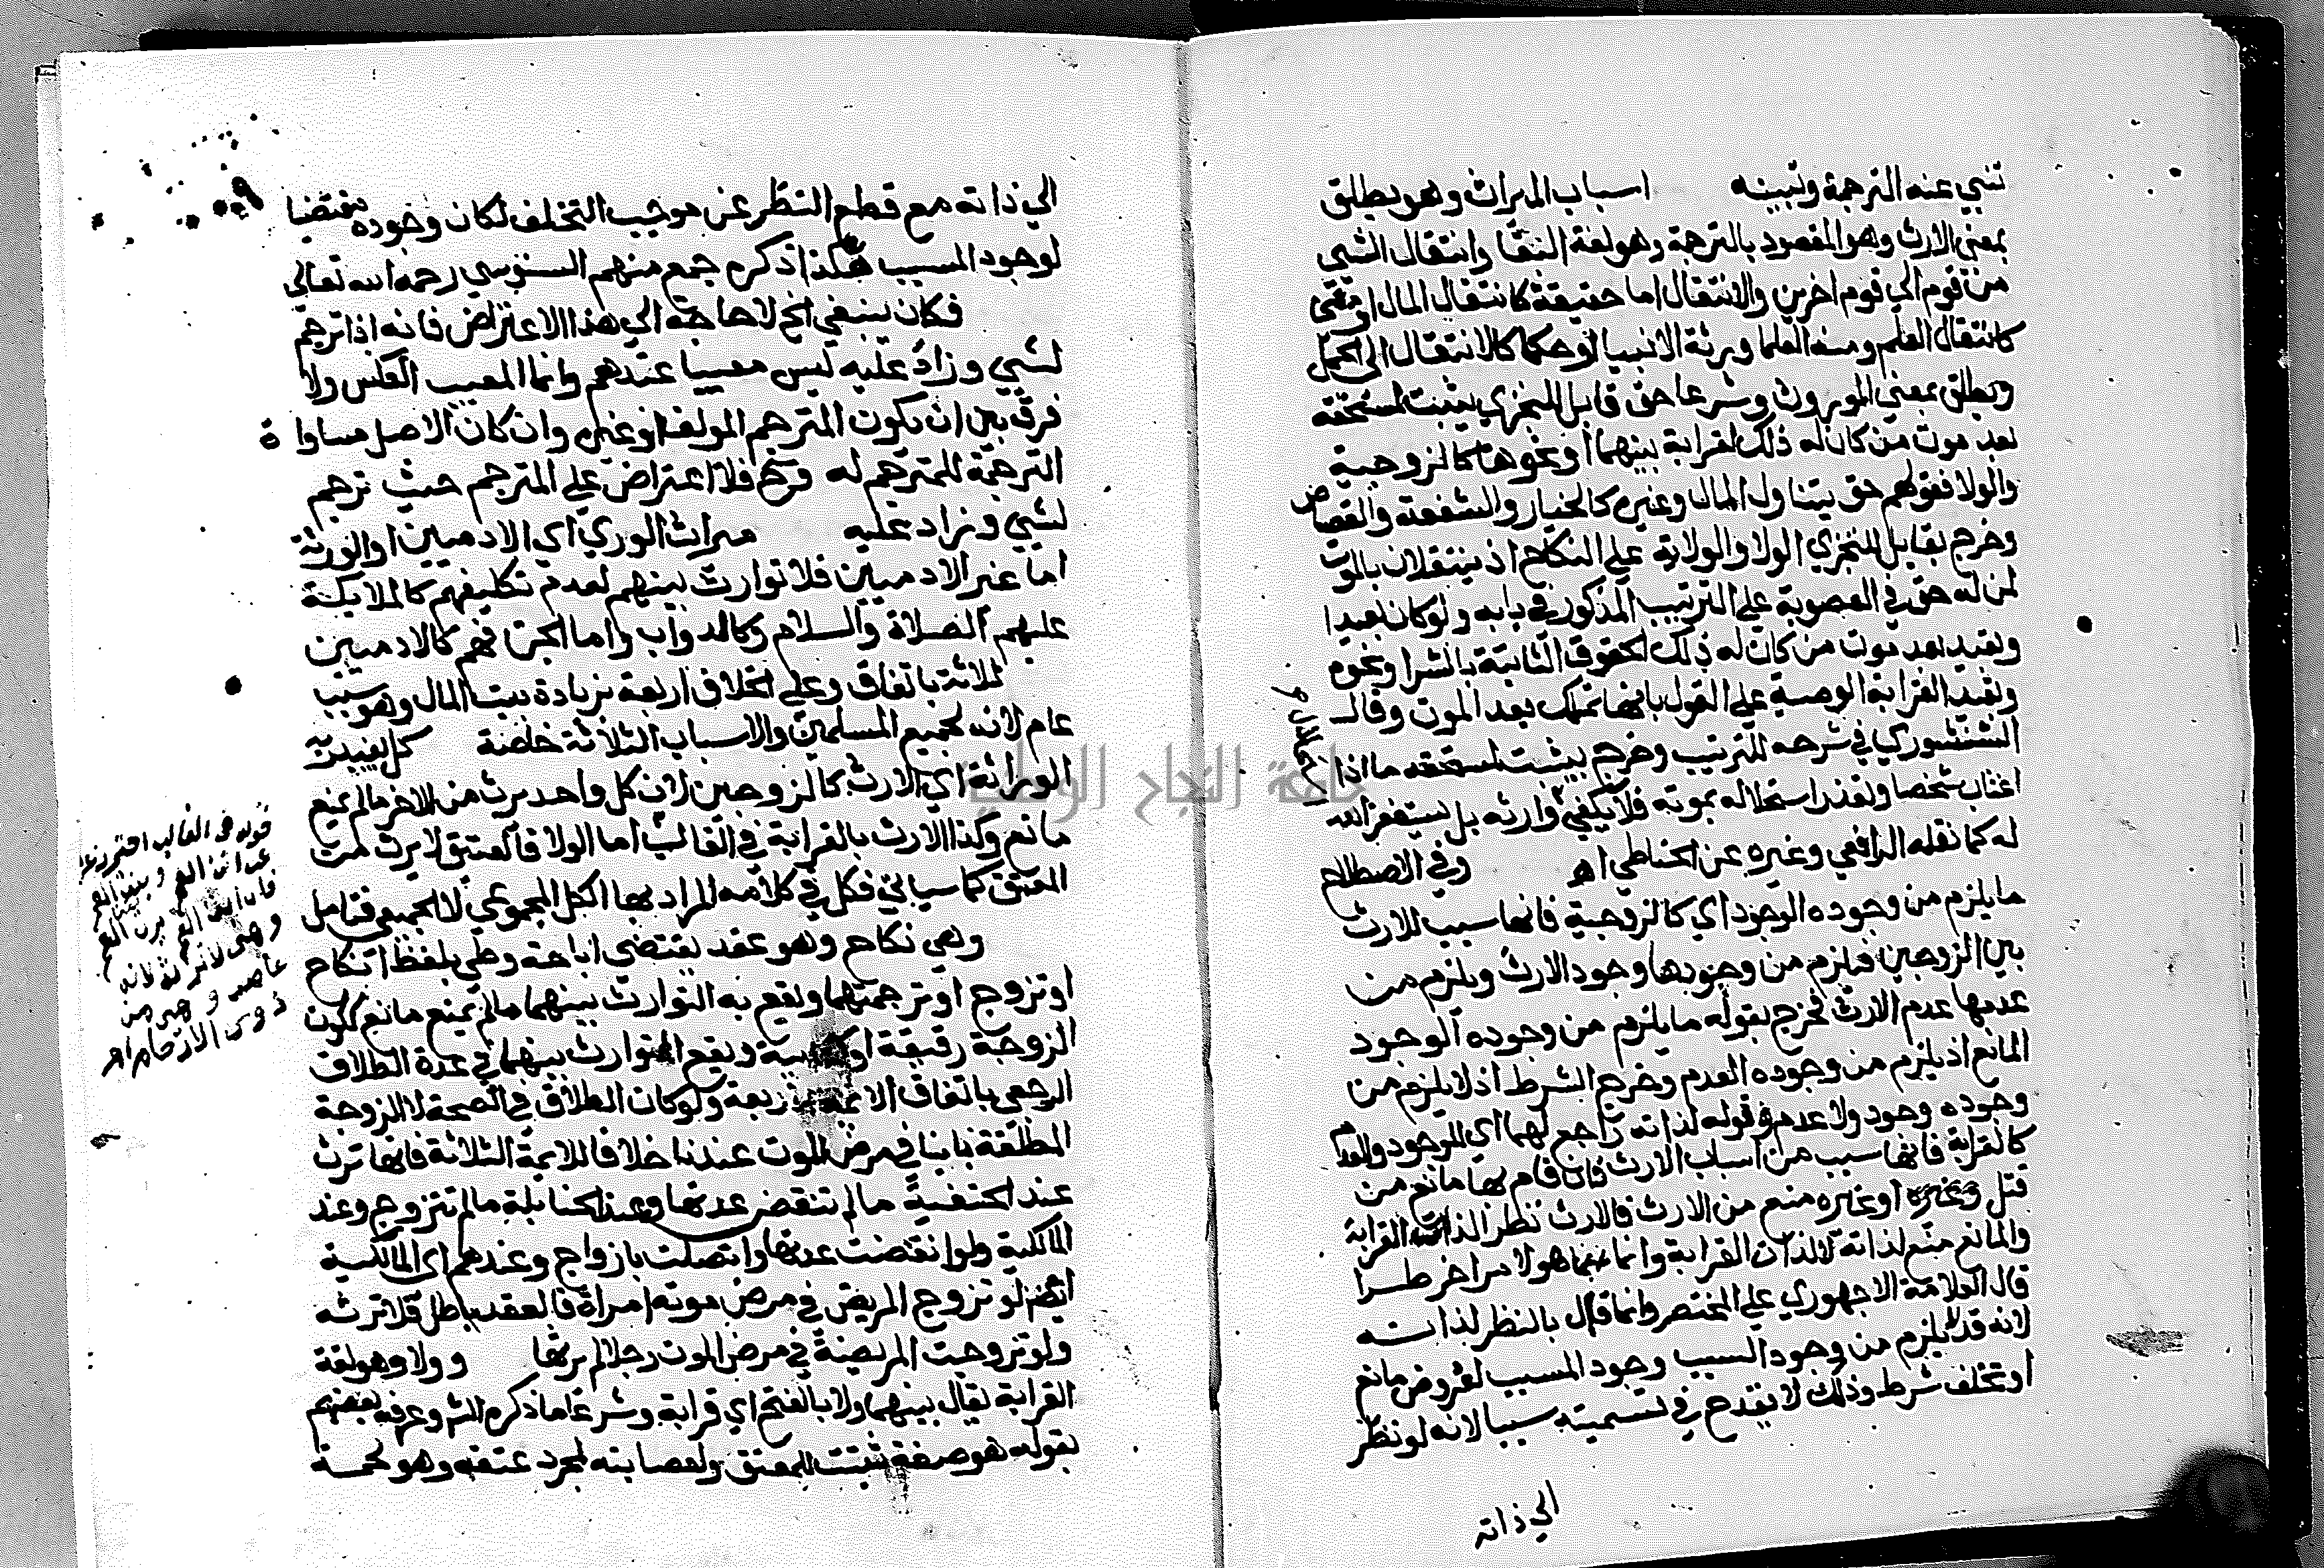 تنبي عنه الترجمة وتبينه اسباب الميراث وهو يطلق
بمعنى الارث وهو المقصود بالترجمة وهو لغة البقا وانتقال الشي
من قوم الي قوم اخرين والانتقال اما حقيقة كانتقال المال او معنى
كانتقال العلم ومنه العلما ورثة الانبيا او حكما كالانتقال الى الحمل
ويطلق بمعنى الموروث وشرعا حق قابل للتجزي يثبت لمستحقه
بعد موت من كان له ذلك لقرابة بينهما او نحوها كالزوجية
والولا فقولهم حق يتناول المال وغيره كالخيار والشفعة والقصاص
وخرج بقابل للتجزي الولا والولاية على النكاح اذ ينتقلان بالموت
لمن له حق في العصوبة على الترتيب المذكور في بابه ولو كان بعيدا
وبقيد بعد موت من كان له ذلك الحقوق الثابتة بالشرا ونحوه
وبقيد القرابة الوصية على القول بانها تملك بعد الموت وقال
الشنشوري في شرحه للترتيب وخرج بيثبت لمستحقه ما اذا
اغتاب شخصا وتعذر استحلاله بموته فلا يكفي وارثه بل يستغفر الله
له كما نقله الرافعي وغيره عن الحناطي اهـ وفي الاصطلاح
ما يلزم من وجوده الوجود اي كالزوجية فانها سبب للارث
بين الزوجين فيلزم من وجودها وجود الارث ويلزم من
عدمها عدم الارث فخرج بقوله ما يلزم من وجوده الوجود
المانع اذ يلزم من وجوده العدم وخرج الشرط اذ لا يلزم من
وجوده وجود ولا عدم وقوله لذاته راجع لهما اي للوجود والعدم
كالقرابة فانها سبب من اسباب الارث فان قام بها مانع من
قتل او غيره منع من الارث فالارث نظرا لذات القرابة
والمانع منع لذاته لا لذات القرابة وانما هو لامر اخر طرا
قال العلامة الاجهوري علي المختصر وانما قال بالنظر لذاته
لانه قد لا يلزم من وجود السبب وجود المسبب لعروض مانع
او تخلف شرط وذلك لا يقدح في تسميته سببا لانه لو نظر
الي ذاته
الي ذاته مع قطع النظر عن موجب التخلف لكان وجوده مقتضيا
لوجود المسبب هكذا ذكره جمع منهم السنوسي رحمه الله تعالى
فكان ينبغي الخ لا حاجة الي هذا الاعتراض فانه اذا ترجم
لشي وزاد عليه ليس معيبا عندهم وانما المعيب العكس ولا
فرق بين ان يكون المترجم المولف او غيره وان كان الاصل مساواة
الترجمة للمترجم له وح فلا اعتراض علي المترجم حيث ترجم
لشي وزاد عليه ميراث الوري اي الادميين او الورثة
اما غير الادميين فلا توارث بينهم لعدم تكليفهم كالملايكة
عليهم الصلاة والسلام وكالدواب واما الجن فهم كالادميين
ثلاثة باتفاق وعلي الخلاف اربعة بزيادة بيت المال وهو سبب
عام لانه لجميع المسلمين والاسباب الثلاثة خاصة كل يفيد ربه
الوراثة اي الارث كالزوجين لان كل واحد يرث من الاخر ما لم يمنع
مانع وكذا الارث بالقرابة في الغالب اما الولا فالعتيق لا يرث لمن
المعتق كما سياتي فكل في كلامه المراد بها الكل المجموعي لا الجميعي فتامل
وهي نكاح وهو عقد يقتضى اباحة وطي بلفظ انكاح
او تزوج او ترجمتهما ويقع به التوارث بينهما ما لم يمنع مانع ككون
الزوجة رقيقة او كتابية ويقع التوارث بينهما في عدة الطلاق
الرجعي باتفاق الائمة الاربعة ولو كان الطلاق في الصحة لا الزوجة
المطلقة باينا في مرض الموت عندنا خلافا للايمة الثلاثة فانها ترث
عند الحنفية ما لم تنقض عدتها وعند الحنابلة ما لم تتزوج وعند
المالكية ولو انقضت عدتها واتصلت بازواج وعندهم اي المالكية
ايضا لو تزوج المريض في مرض موته امراة فالعقد باطل فلا ترثه
ولو تزوجت المريضة في مرض الموت رجلا لم يرثها وولا وهو لغة
القرابة يقال بينهما ولا بالفتح اي قرابة وشرعا ما ذكره الش وعرفه بعضهم
بقوله هو صفة تثبت للمعتق ولعصابته لمجرد عتقه وهو لحمة
قوله في الغالب احترز به
عن ابن العم وبنت العم
فان ابن العم يرث العم
وهي لا ترثه لانه
عاصب وهي من
ذوي الارحام اهـ
جامعة النجاح الوطنية